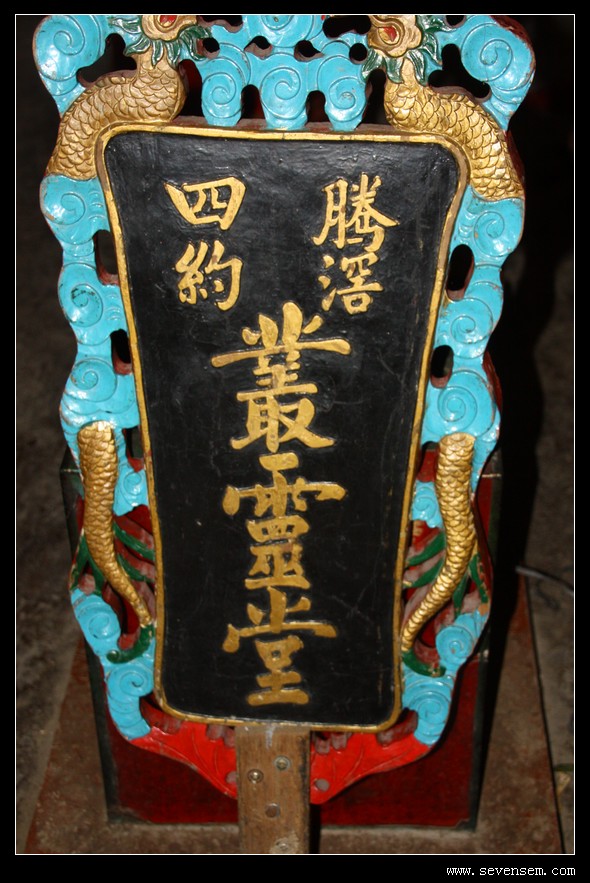 騰滘
四約
叢靈堂
www.sevensem.com